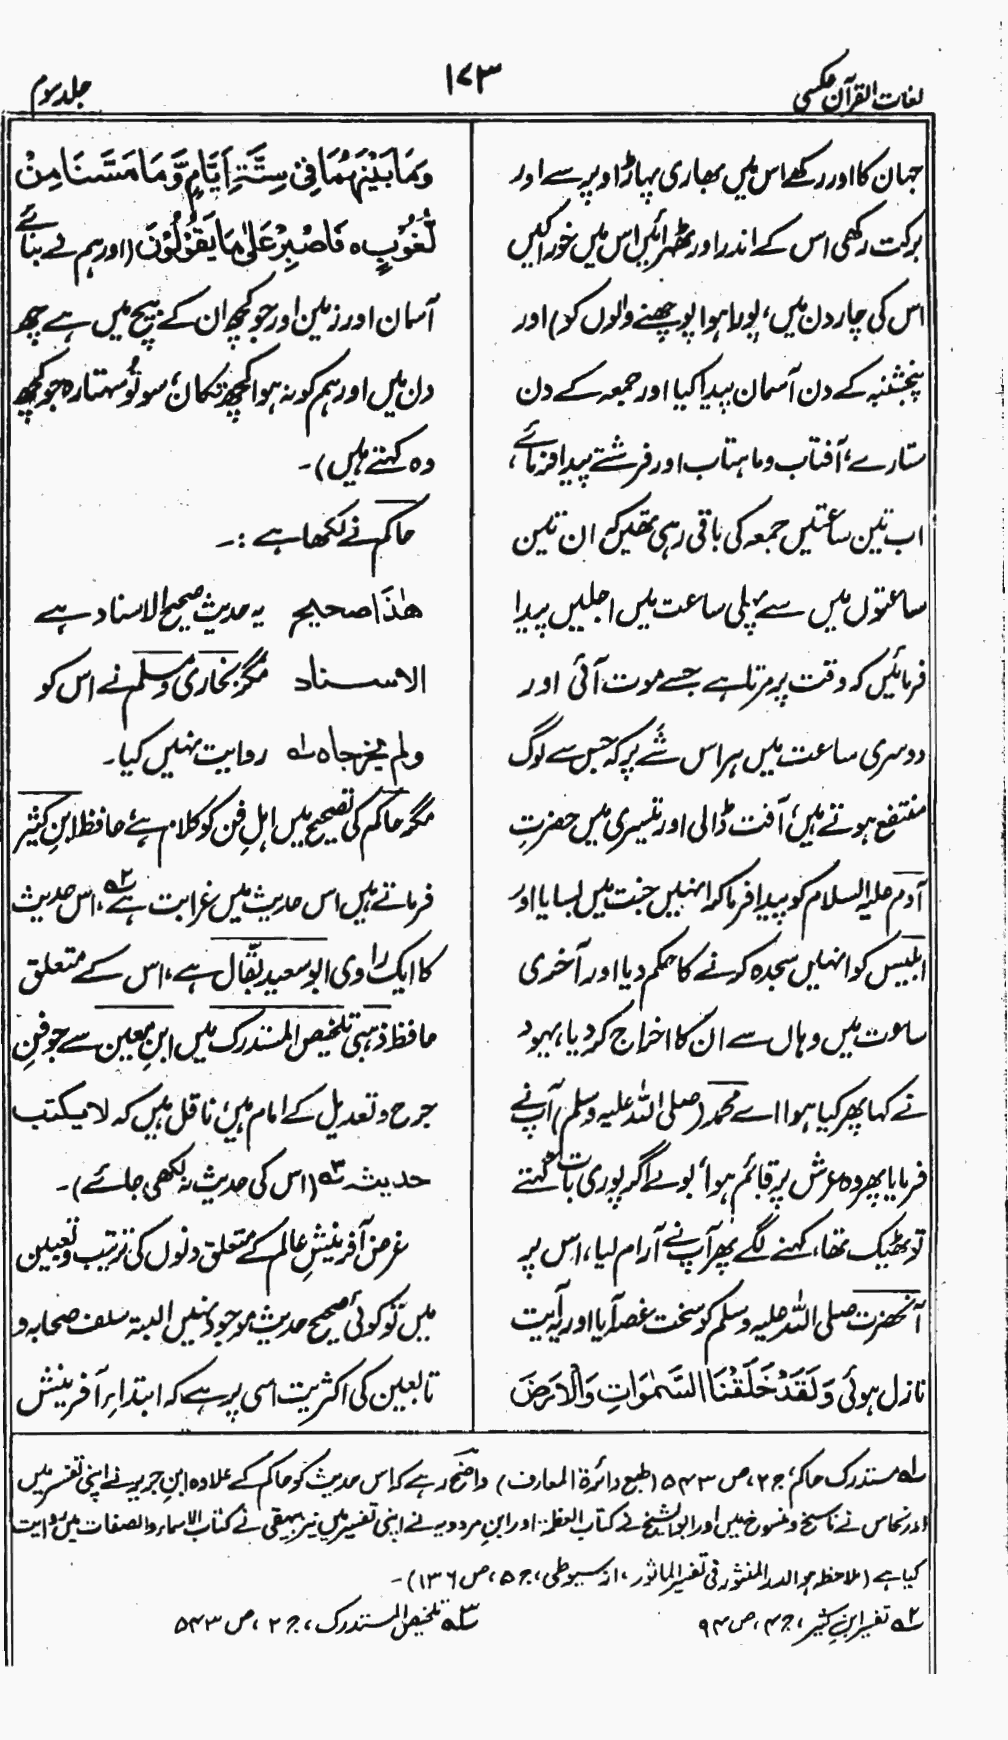 لغات القرآن عکسی
۱۷۳
جلد سوم
جہان کا اور رکھے اس میں بھاری پہاڑ اوپر سے اور
برکت رکھی اس کے اندر اور ٹھہرائیں اس میں خوراکیں
اس کی چار دن میں، پورا ہوا پوچھنے والوں کو) اور
پنجشنبہ کے دن آسمان پیدا کیا اور جمعہ کے دن
ستارے، آفتاب و ماہتاب اور فرشتے پیدا فرمائے،
اب تین ساعتیں جمعہ کی باقی رہی تھیں کہ ان تین
ساعتوں میں سے پہلی ساعت میں اجلیں پیدا
فرمائیں کہ وقت پر مرتا ہے جسے موت آئی اور
دوسری ساعت میں ہر اس شے پر کہ جس سے لوگ
منتفع ہوتے ہیں، آفت ڈالی اور تیسری میں حضرتِ
آدم علیہ السلام کو پیدا فرما کر انہیں جنت میں بسایا اور
ابلیس کو انہیں سجدہ کرنے کا حکم دیا اور آخری
ساعت میں وہاں سے ان کا اخراج کر دیا، یہود
نے کہا پھر کیا ہوا اے محمد (صلی اللہ علیہ وسلم) آپ نے
فرمایا پھر وہ عرش پر قائم ہوا، بولے اگر پوری بات کہتے
تو ٹھیک تھا، کہنے لگے پھر آپ نے آرام لیا، اس پر
آنحضرت صلی اللہ علیہ وسلم کو سخت غصہ آیا اور یہ آیت
نازل ہوئی وَلَقَدْ خَلَقْنَا السَّمٰوَاتِ وَالْاَرْضَ
وَمَا بَیْنَهُمَا فِیْ سِتَّةِ اَیَّامٍ وَّمَا مَسَّنَا مِنْ
لُّغُوْبٍ ہ فَاصْبِرْ عَلٰی مَا یَقُوْلُوْنَ (اور ہم نے بنائے
آسمان اور زمین اور جو کچھ ان کے بیچ میں ہے چھ
دن میں اور ہم کو نہ ہوا کچھ تکان، سو تُو سہتا رہ جو کچھ
وہ کہتے ہیں)۔
حاکم نے لکھا ہے :۔
ھٰذا صحیح یہ حدیث صحیح الاسناد ہے
الاسناد مگر بخاری و مسلم نے اس کو
ولم یخرجاہ ۱؎ روایت نہیں کیا۔
مگر حاکم کی تصحیح میں اہلِ فن کو کلام ہے، حافظ ابنِ کثیر
فرماتے ہیں اس حدیث میں غرابت ہے ۲؎، اس حدیث
کا ایک راوی ابو سعید بقّال ہے، اس کے متعلق
حافظ ذہبی تلخیص المستدرک میں ابنِ معین سے جو فنِ
جرح و تعدیل کے امام ہیں، ناقل ہیں کہ لا یکتب
حدیثہ ۳؎ (اس کی حدیث نہ لکھی جائے)۔
غرض آفرینشِ عالم کے متعلق دنوں کی ترتیب و تعیین
میں تو کوئی صحیح حدیث موجود نہیں البتہ سلف صحابہ و
تابعین کی اکثریت اسی پر ہے کہ ابتداءِ آفرینش
۱؎ مستدرک حاکم، ج ۲، ص ۵۴۳ (طبع دائرۃ المعارف) واضح رہے کہ اس حدیث کو حاکم کے علاوہ ابنِ جریر نے اپنی تفسیر میں
اور نحاس نے ناسخ و منسوخ میں اور ابوالشیخ نے کتاب العظمۃ اور ابنِ مردویہ نے اپنی تفسیر میں نیز بیہقی نے کتاب الاسماء والصفات میں روایت
کیا ہے (ملاحظہ ہو الدر المنثور فی تفسیر الماثور، از سیوطی، ج ۵، ص ۱۳۶)۔
۲؎ تفسیر ابنِ کثیر، ج ۴، ص ۹۴
۳؎ تلخیص المستدرک، ج ۲، ص ۵۴۳